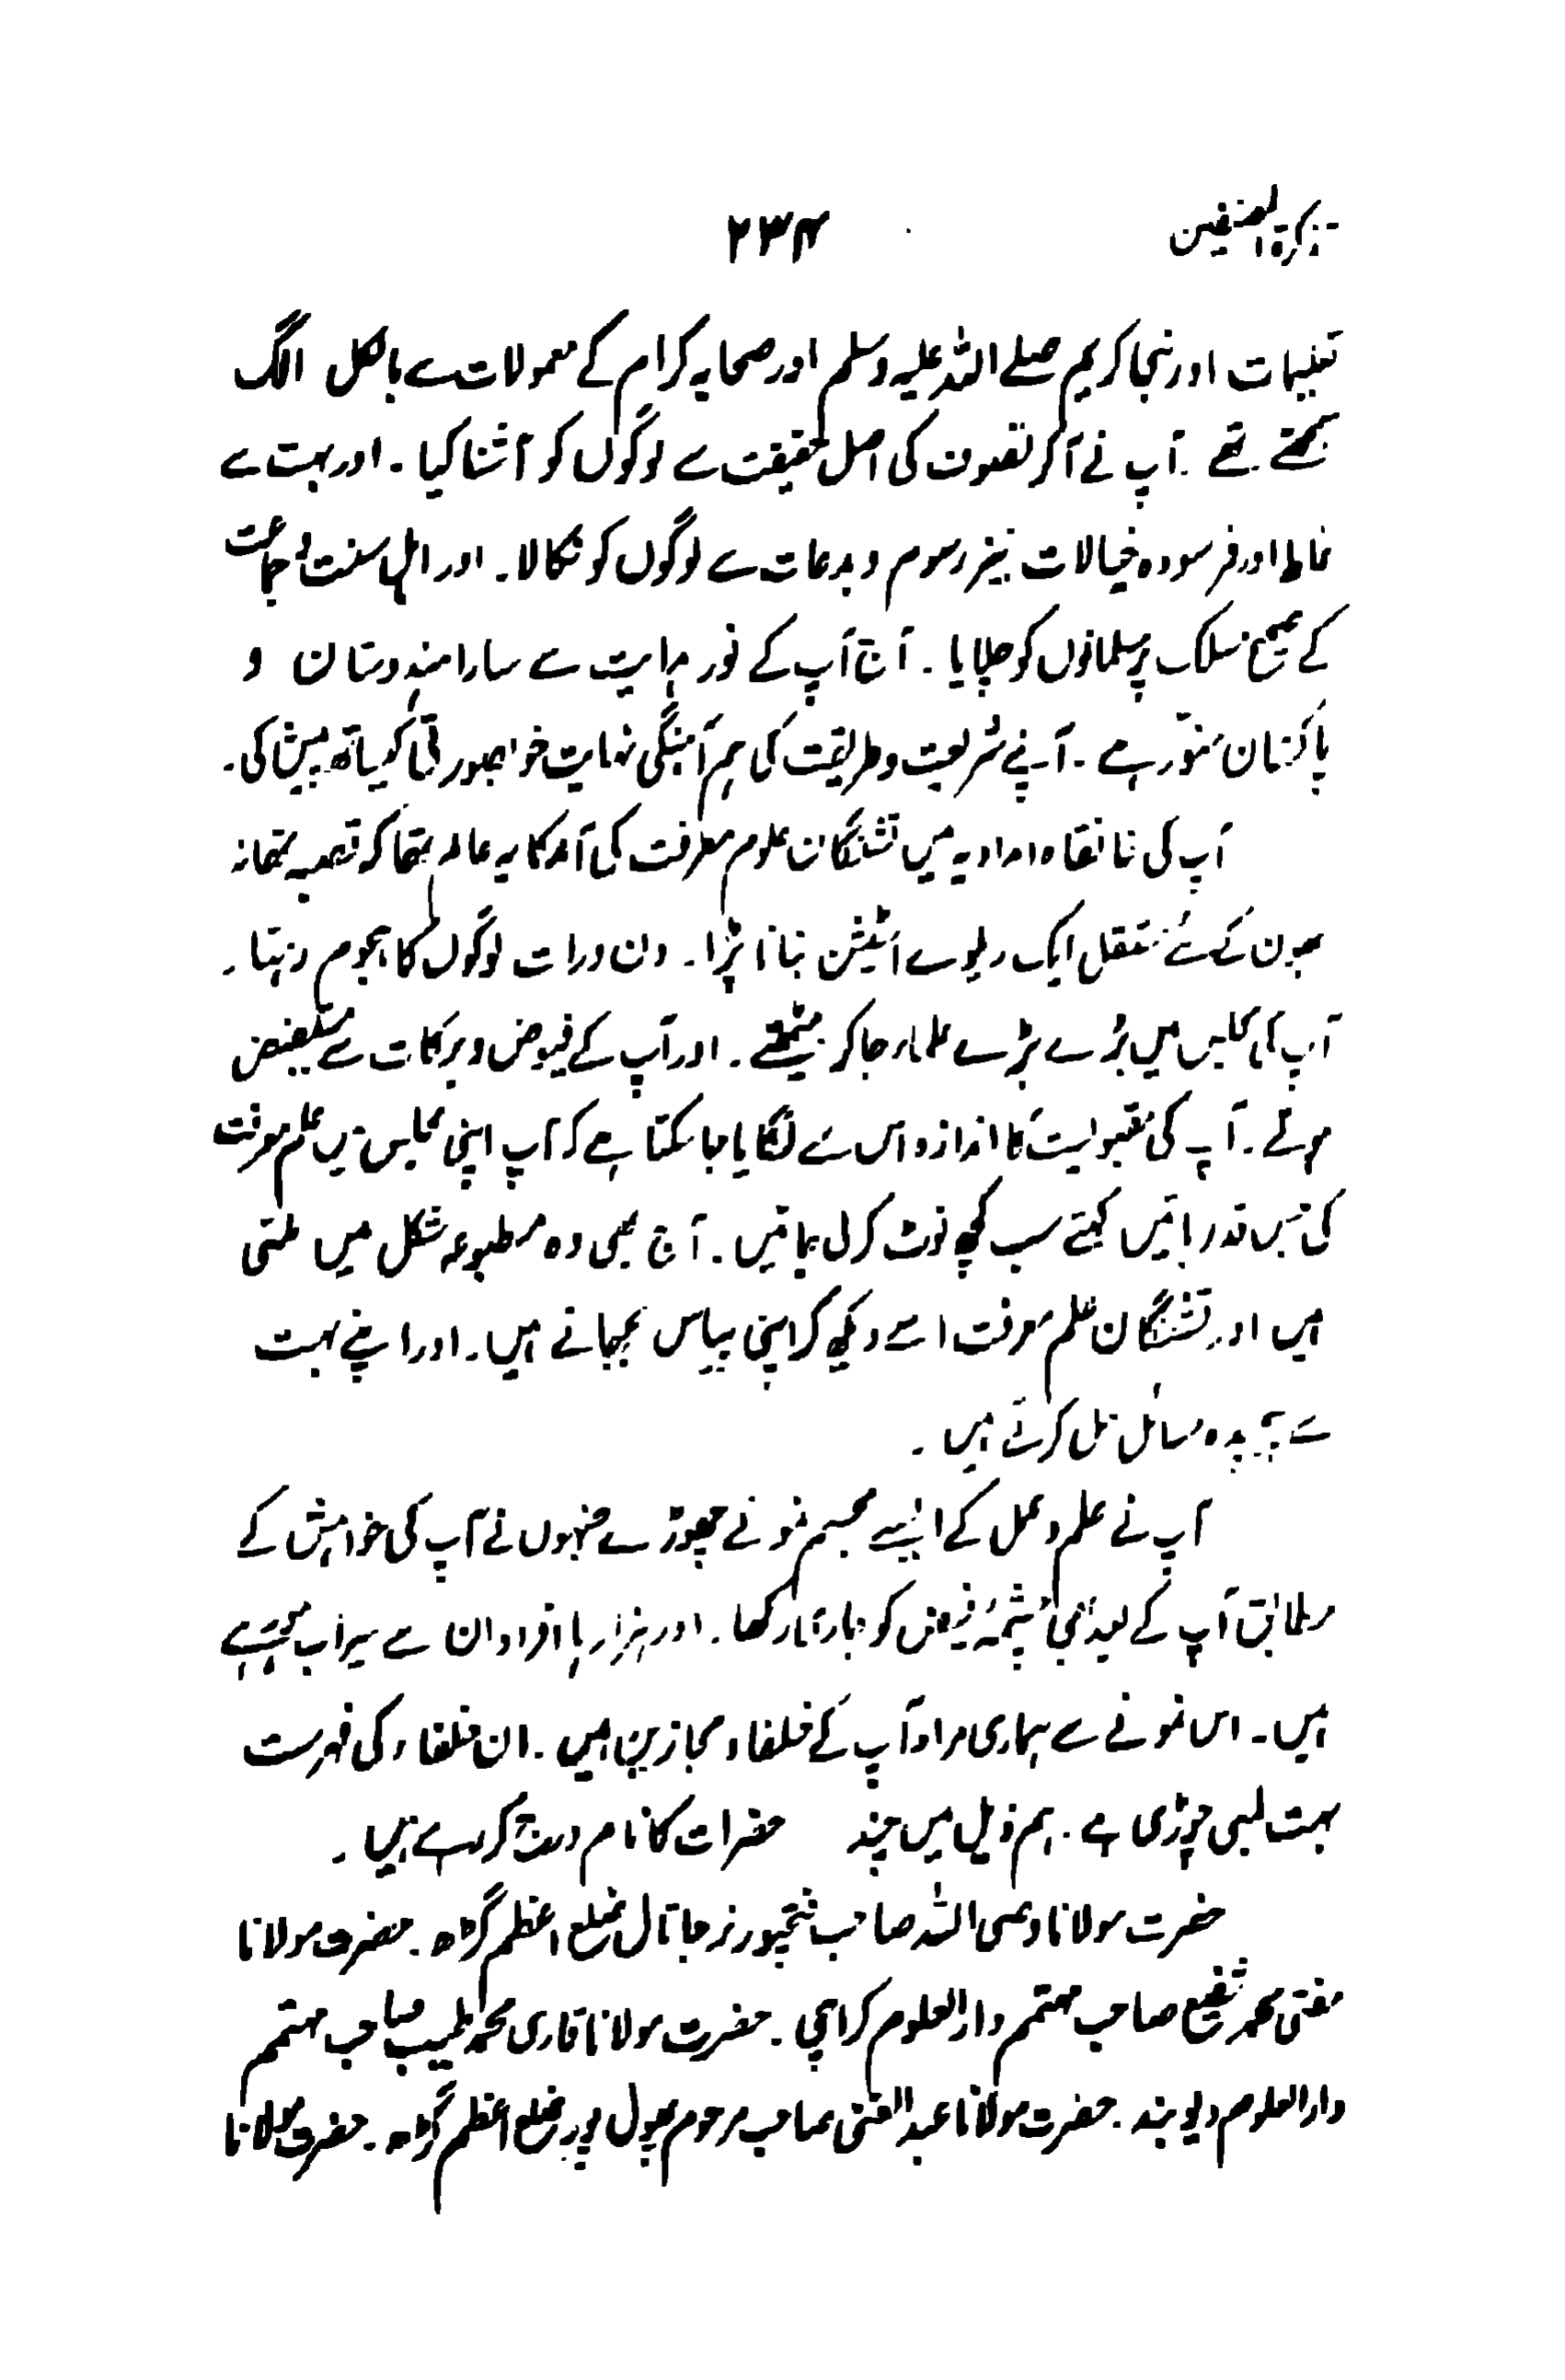 تذکرۃ المصنفین
۲۳۴
تعلیمات اور نبی کریم صلے اللہ علیہ وسلم اور صحابہ کرام کے معمولات سے بالکل الگ
سمجھتے تھے۔ آپ نے آکر تصوف کی اصل حقیقت سے لوگوں کو آشنا کیا۔ اور بہت سے
غلط اور فرسودہ خیالات نیز رسوم و بدعات سے لوگوں کو نکالا۔ اور اہل سنت و جماعت
کے صحیح مسلک پر مسلمانوں کو چلایا۔ آج آپ کے نور ہدایت سے سارا ہندوستان و
پاکستان منور ہے۔ آپنے شریعت و طریقت کی ہم آہنگی نہایت خوبصورتی کیساتھ پیش کی۔
آپ کی خانقاہ امدادیہ میں تشنگان علوم معرفت کی آمد کا یہ عالم تھا کہ قصبہ تھانہ
بھون کے لئے مستقل ایک ریلوے اسٹیشن بنانا پڑا۔ دن و رات لوگوں کا ہجوم رہتا۔
آپ کی مجلس میں بڑے بڑے علماء جا کر بیٹھتے۔ اور آپ کے فیوض و برکات سے مستفیض
ہوتے۔ آپ کی مقبولیت کا اندازہ اس سے لگایا جا سکتا ہے کہ آپ اپنی مجلس میں علم معرفت
کی جس قدر باتیں کہتے سب کچھ نوٹ کر لی جاتیں۔ آج بھی وہ مطبوعہ شکل میں ملتی
ہیں اور تشنگان علم معرفت اسے دیکھ کر اپنی پیاس بجھاتے ہیں۔ اور اپنے بہت
سے پیچیدہ مسائل حل کرتے ہیں۔
آپ نے علم و عمل کے ایسے مجسم نمونے چھوڑے جنہوں نے آپ کی خواہش کے
مطابق آپ کے بعد بھی چشمۂ فیض کو جاری رکھا۔ اور ہزارہا افراد ان سے سیراب ہو رہے
ہیں۔ اس نمونے سے ہماری مراد آپ کے خلفاء و مجازین ہیں۔ ان خلفاء کی فہرست
بہت لمبی چوڑی ہے۔ ہم ذیل میں چند حضرات کا نام درج کر رہے ہیں۔
حضرت مولانا وصی اللہ صاحب فتحپور نرجا تال ضلع اعظم گڑھ۔ حضرت مولانا
مفتی محمد شفیع صاحب مہتمم دارالعلوم کراچی۔ حضرت مولانا قاری محمد طیب صاحب مہتمم
دارالعلوم دیوبند۔ حضرت مولانا عبدالغنی صاحب مرحوم پھول پور ضلع اعظم گڑھ۔ حضرت مولانا